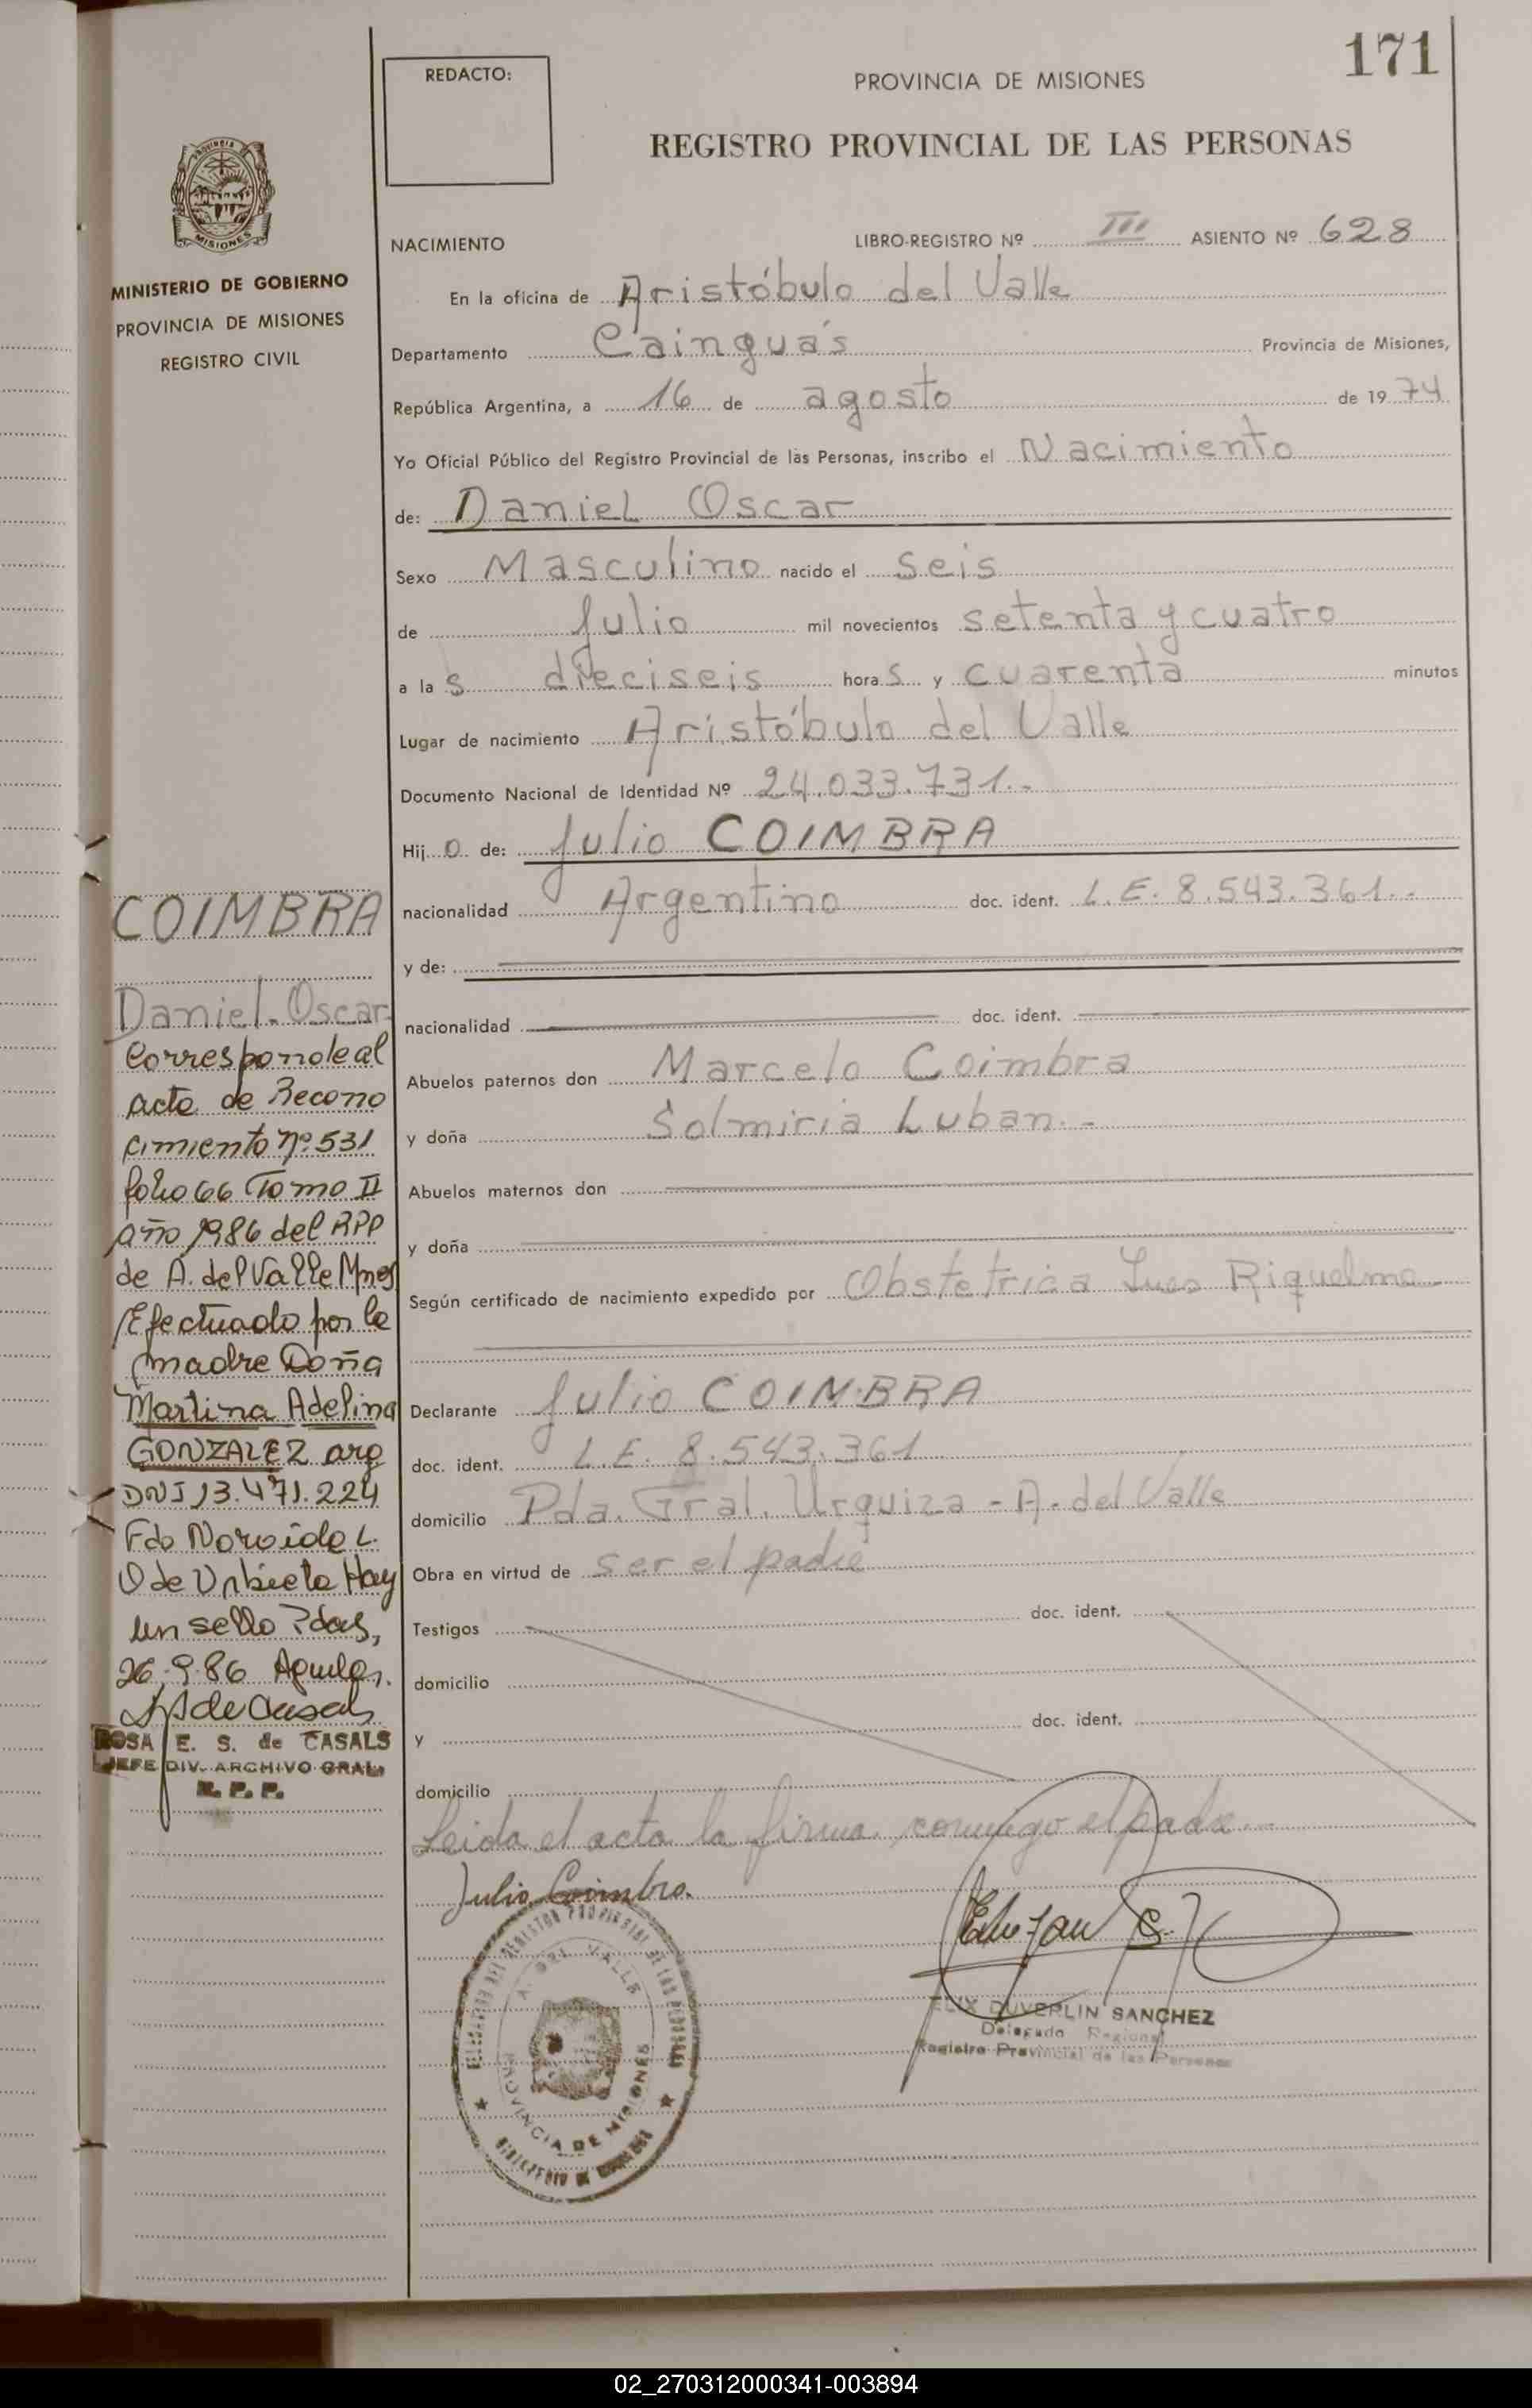 171
REDACTO:
PROVINCIA DE MISIONES
REGISTRO PROVINCIAL DE LAS PERSONAS
PROVINCIA DE MISIONES
MINISTERIO DE GOBIERNO
PROVINCIA DE MISIONES
REGISTRO CIVIL
NACIMIENTO LIBRO-REGISTRO Nº III ASIENTO Nº 628
En la oficina de Aristóbulo del Valle
Departamento Cainguás Provincia de Misiones,
República Argentina, a 16 de agosto de 1974
Yo Oficial Público del Registro Provincial de las Personas, inscribo el Nacimiento
de: Daniel Oscar
Sexo Masculino nacido el seis
de Julio mil novecientos setenta y cuatro
a las dieciseis horas y cuarenta minutos
Lugar de nacimiento Aristóbulo del Valle
Documento Nacional de Identidad Nº 24.033.731.-
Hijo de: Julio COIMBRA
nacionalidad Argentino doc. ident. L.E. 8.543.361.-
y de:
nacionalidad doc. ident.
Abuelos paternos don Marcelo Coimbra
y doña Solmiria Luban.-
Abuelos maternos don
y doña
Según certificado de nacimiento expedido por Obstetrica Ines Riquelme
Declarante Julio COIMBRA
doc. ident. L.E. 8.543.361
domicilio Pda. Gral. Urquiza - A. del Valle
Obra en virtud de ser el padre
Testigos doc. ident.
domicilio
y doc. ident.
domicilio
Leida el acta la firma conmigo el padre.-
Julio Coimbra.
COIMBRA
Daniel Oscar
Corresponde al
acta de Recono
cimiento nº 531
folio 66 Tomo II
año 1986 del RPP
de A. del Valle Mnes
Efectuado por la
madre Doña
Martina Adelina
GONZALEZ arg
DNI 13.471.224
Fdo L.
O de Urbieta Hay
un sello Pdas,
26.9.86
ROSA E. S. de CASALS
JEFE DIV. ARCHIVO GRAL.
R. P. P.
A. DEL VALLE
PROVINCIA DE MISIONES
ELIX DUVERLIN SANCHEZ
Delegado Regional
Registro Provincial de las Personas
02_270312000341-003894